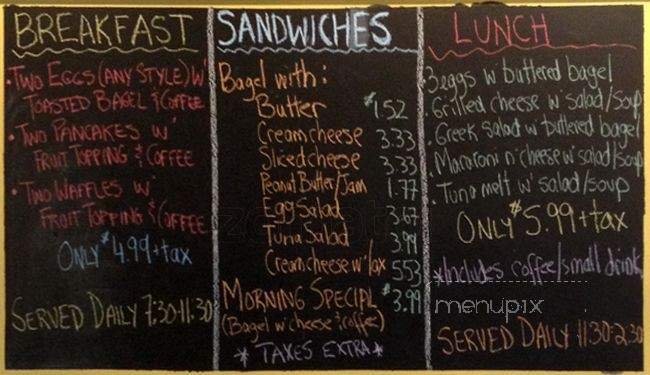 BREAKFAST
• TWO EGGS (ANY STYLE) W'
TOASTED BAGEL & COFFEE
• TWO PANCAKES W'
FRUIT TOPPING & COFFEE
• TWO WAFFLES W'
FRUIT TOPPING & COFFEE
ONLY $4.99 + tax
SERVED DAILY 7:30-11:30
SANDWICHES
Bagel with:
Butter $1.52
Cream cheese 3.33
Sliced cheese 3.33
Peanut Butter/Jam 1.77
Egg Salad 3.67
Tuna Salad 3.99
Cream cheese w' lox 5.53
MORNING SPECIAL $3.99
(Bagel w' cheese & coffee)
* TAXES EXTRA *
LUNCH
• 3 eggs w' buttered bagel
• Grilled cheese w' salad/soup
• Greek salad w' buttered bagel
• Macaroni n' cheese w' salad/soup
• Tuna melt w' salad/soup
ONLY $5.99 + tax
* Includes coffee/small drink
menupix
SERVED DAILY 11:30-2:30